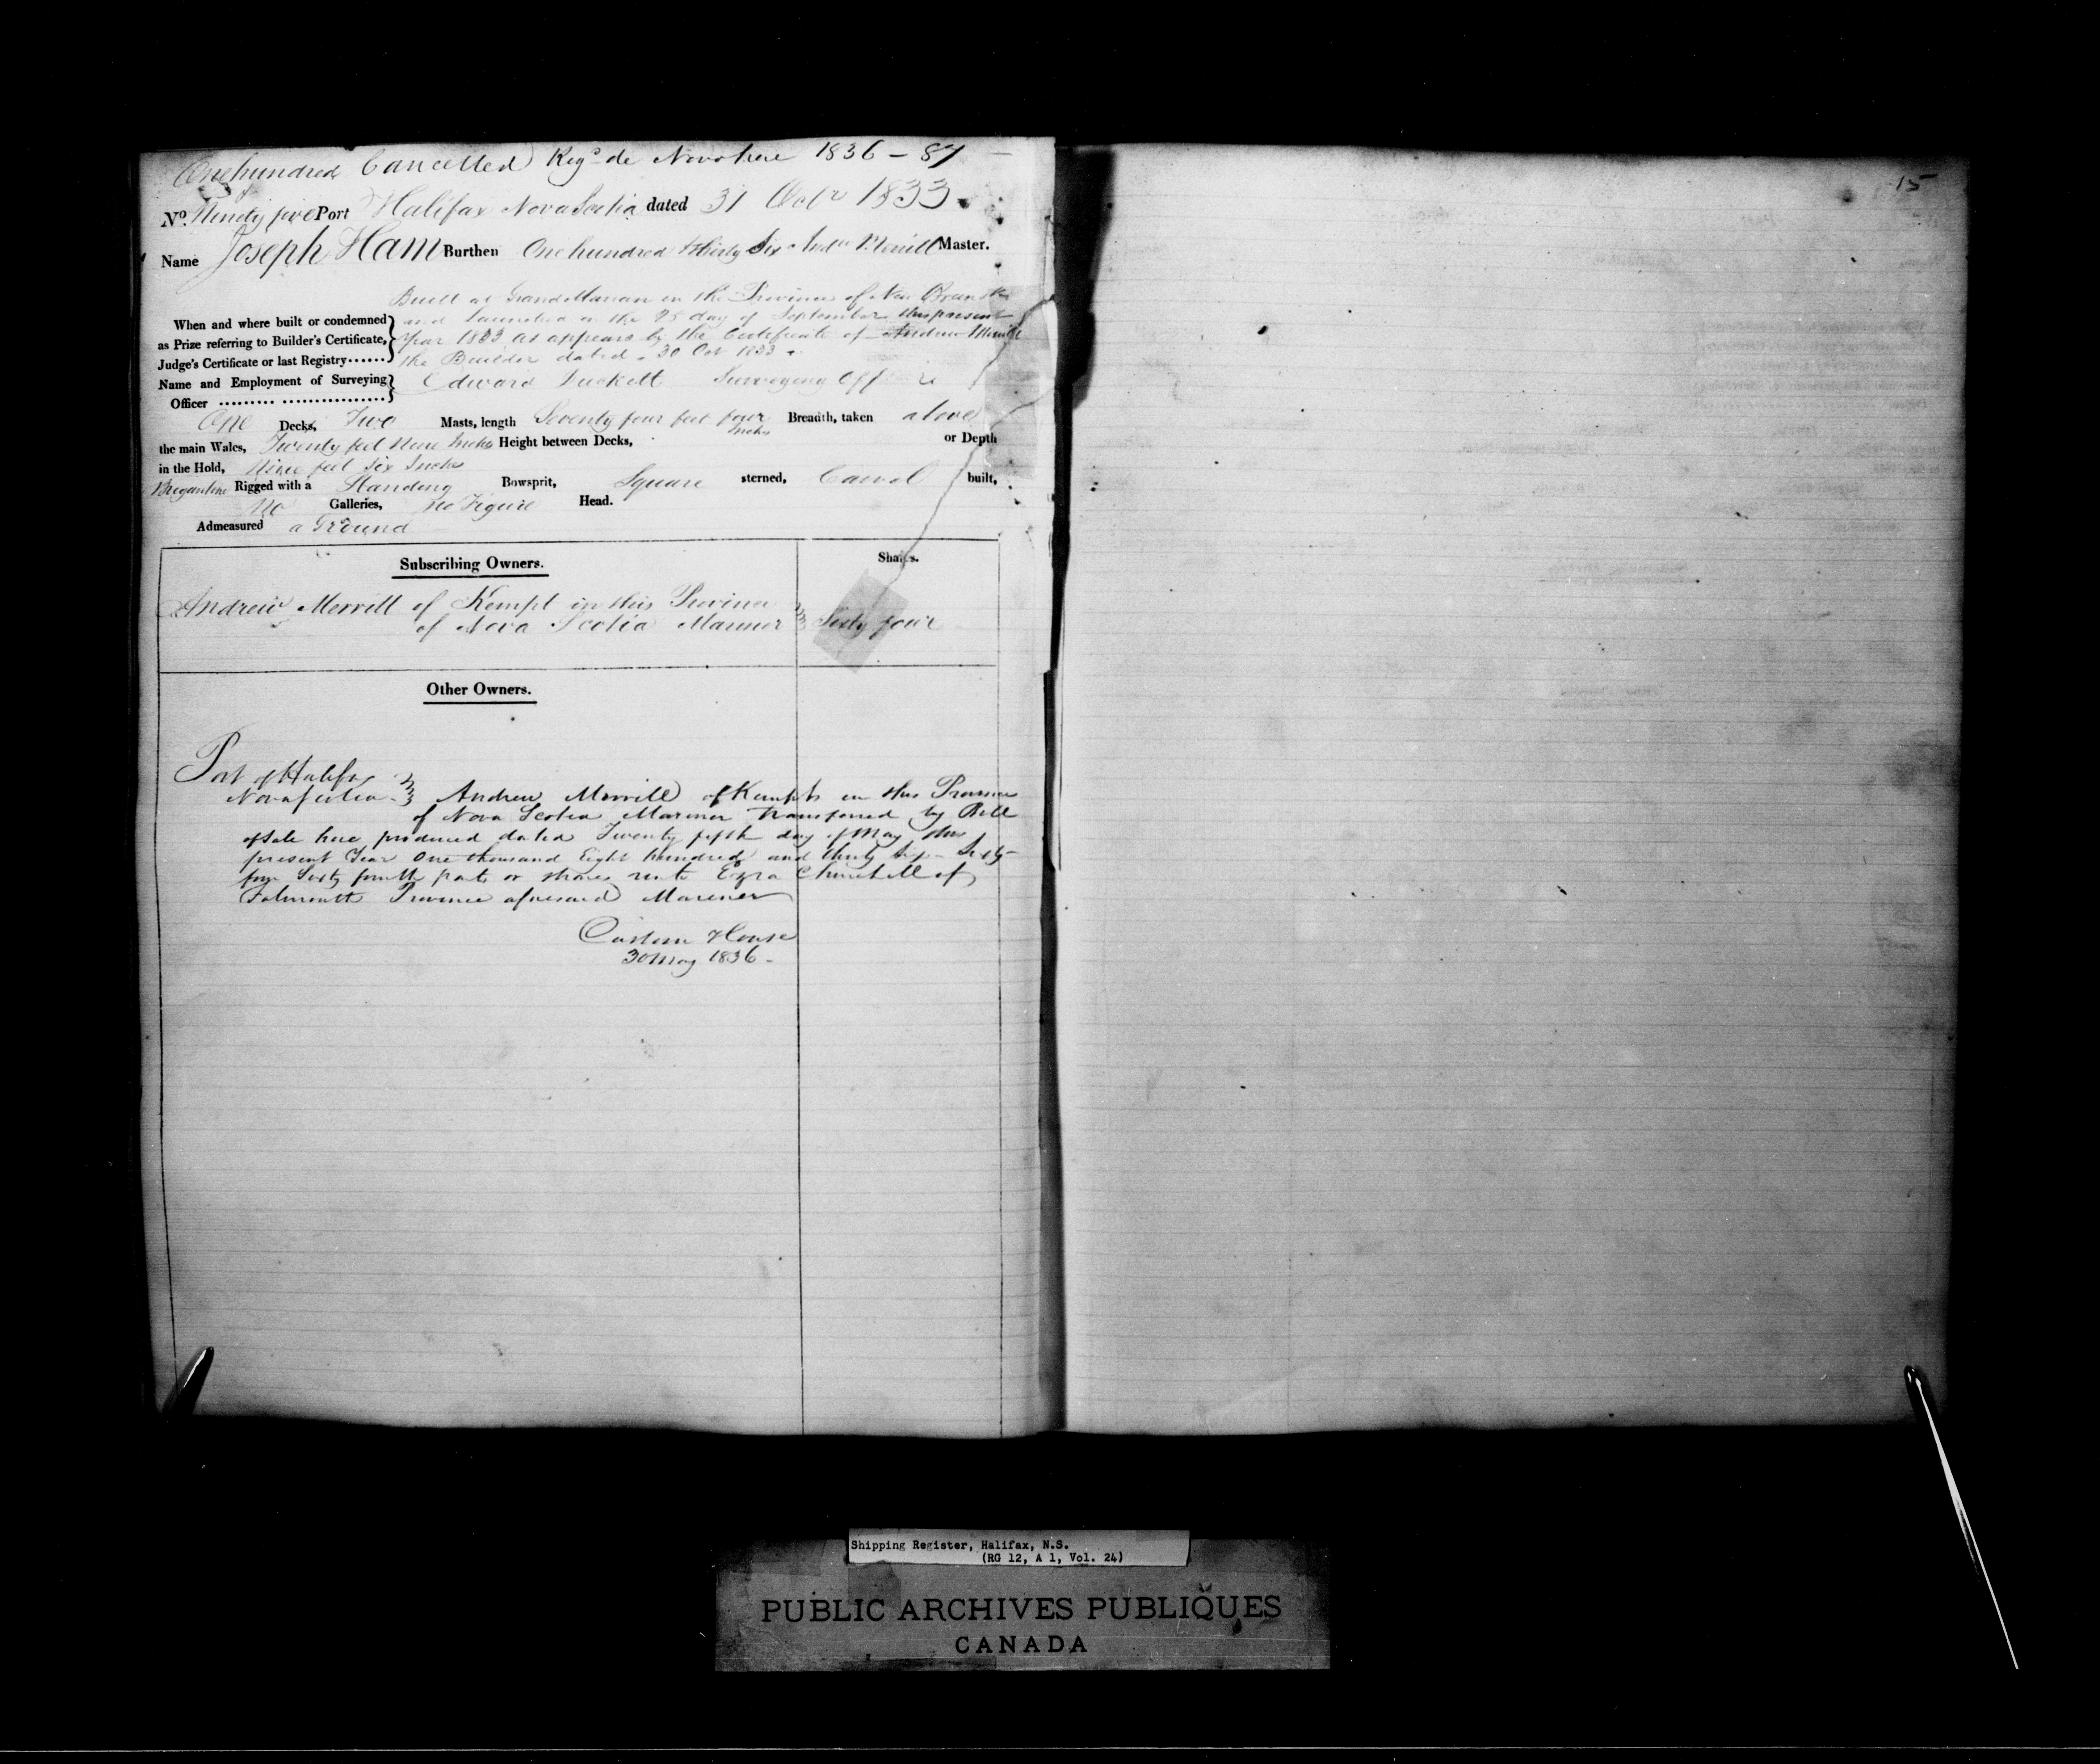 One hundred Cancelled Regd de Novo here 1836 - 87
&
No. Ninety five Port Halifax Nova Scotia dated 31 Octr 1833.
Name Joseph Ham Burthen One hundred & thirty Six Andw Merrill Master.
Built at Grand Manan in the Province of New Brunsk
When and where built or condemned and launched on the 25 day of September this present
as Prize referring to Builder's Certificate, Year 1833 as appears by the Certificate of Andrew Merrill
Judge's Certificate or last Registry...... the Builder dated 30 Oct 1833
Name and Employment of Surveying Edward Surveying
Officer
One Decks, Two Masts, length Seventy four feet four Inches Breadth, taken above
the main Wales, Twenty feet Nine Inches Height between Decks, or Depth
in the Hold, Nine feet Six Inches
Brigantine Rigged with a Standing Bowsprit, Square sterned, Carvel built,
No Galleries, no Figure Head.
Admeasured a Ground
Subscribing Owners. Shares.
Andrew Merrill of Kempt in this Province
of Nova Scotia Mariner Sixty four
Other Owners.
Port of Halifax
Nova Scotia Andrew Merrill of Kempt in this Province
of Nova Scotia Mariner transferred by Bill
of Sale here produced dated Twenty fifth day of May this
present Year One thousand Eight hundred and thirty Six - Sixty
four Sixty fourth parts or shares unto Ezra Churchill of
Falmouth Province aforesaid Mariner
Custom House
30 May 1836 -
15
Shipping Register, Halifax, N.S.
(RG 12, A 1, Vol. 24)
PUBLIC ARCHIVES PUBLIQUES
CANADA